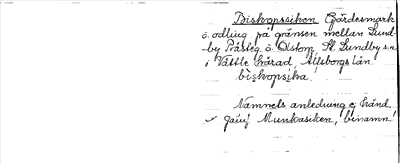 Biskopssiken Gärdesmark
o. odling på gränsen mellan Lund-
by Prästeg. o. Olstorp St. Lundby s:n
i Vättle härad, Älvsborgs län.
biskopsika!
Namnets anledning ej känd.
Jämf Munkasiken, binamn!